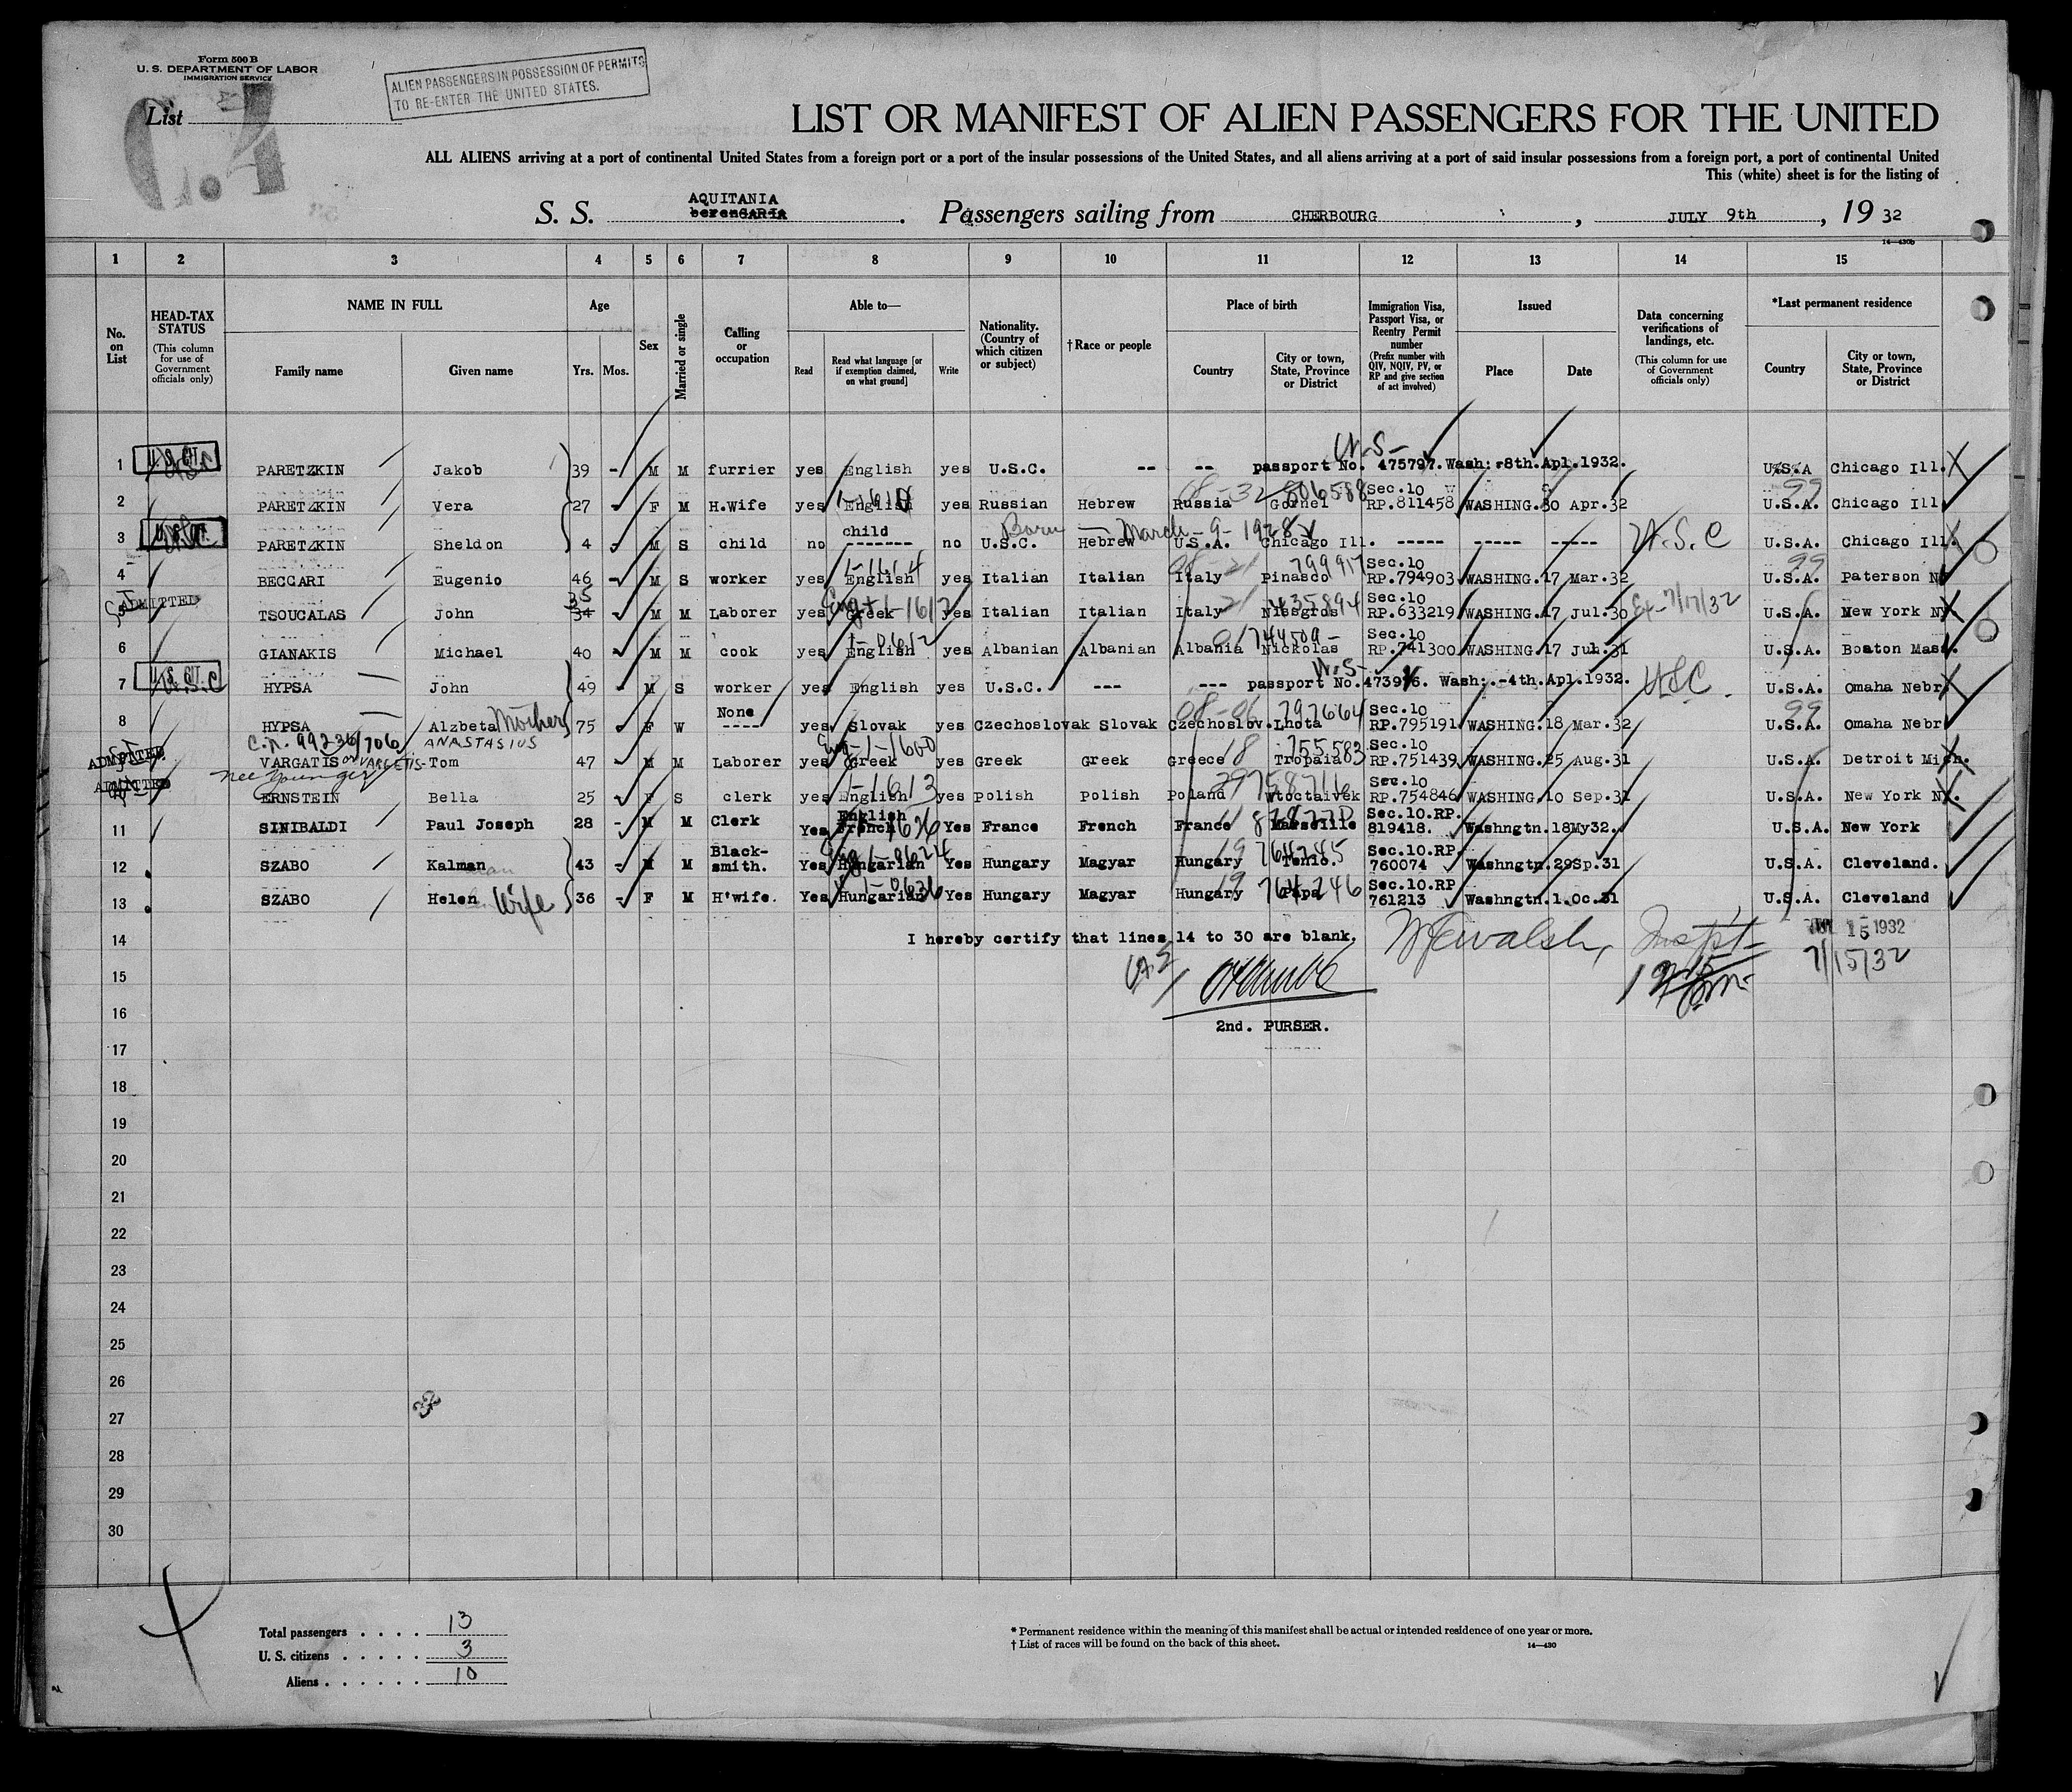 Form 500 B
U. S. DEPARTMENT OF LABOR
IMMIGRATION SERVICE
ALIEN PASSENGERS IN POSSESSION OF PERMITS
TO RE-ENTER THE UNITED STATES.
List
LIST OR MANIFEST OF ALIEN PASSENGERS FOR THE UNITED
ALL ALIENS arriving at a port of continental United States from a foreign port or a port of the insular possessions of the United States, and all aliens arriving at a port of said insular possessions from a foreign port, a port of continental United
This (white) sheet is for the listing of
S. S. AQUITANIA berenGARIA . Passengers sailing from CHERBOURG , JULY 9th , 19 32
14—430b
1 2 3 4 5 6 7 8 9 10 11 12 13 14 15
No. on List
HEAD-TAX STATUS
(This column for use of Government officials only)
NAME IN FULL
Family name Given name
Age
Yrs. Mos.
Sex
Married or single
Calling or occupation
Able to—
Read Read what language [or if exemption claimed, on what ground] Write
Nationality. (Country of which citizen or subject)
†Race or people
Place of birth
Country City or town, State, Province or District
Immigration Visa, Passport Visa, or Reentry Permit number
(Prefix number with QIV, NQIV, PV, or RP and give section of act involved)
Issued
Place Date
Data concerning verifications of landings, etc.
(This column for use of Government officials only)
*Last permanent residence
Country City or town, State, Province or District
U.S-
1 U. S. CIT. PARETZKIN Jakob 39 - M M furrier yes English yes U.S.C. -- -- passport No. 475797. Wash: -8th.Apl.1932. U.S.A Chicago Ill.
08-32 806588 99
2 PARETZKIN Vera 27 - F M H.Wife yes English yes Russian Hebrew Russia Gomel Sec.10 RP.811458 WASHING. 30 Apr.32 U.S.A. Chicago Ill
Born — March - 9 - 1928
3 U. S. CIT. PARETZKIN Sheldon 4 M S child no child ------- no U.S.C. Hebrew U.S.A. Chicago Ill. ----- ----- ----- U.S.C U.S.A. Chicago Ill.
1-1614 08-21 799917 99
4 BECCARI Eugenio 46 - M S worker yes English yes Italian Italian Italy Pinasco Sec.10 RP.794903 WASHING. 17 Mar.32 U.S.A. Paterson N
35
5 ADMITTED TSOUCALAS John 34 - M M Laborer yes Greek yes Italian Italian Italy 635894 Sec.10 RP.633219 WASHING. 17 Jul.30 Ex-7/17/32 U.S.A. New York NY
744509-
6 GIANAKIS Michael 40 - M M cook yes English yes Albanian Albanian Albania Nickolas Sec.10 RP.741300 WASHING. 17 Jun.31 U.S.A. Boston Mass.
U.S-
7 U. S. CIT. U.S.C HYPSA John 49 - M S worker yes English yes U.S.C. --- --- passport No.473976. Wash:.-4th.Apl.1932. USC. U.S.A. Omaha Nebr
08-06 797664 99
8 HYPSA Alzbeta Mother 75 F W None ---- yes Slovak yes Czechoslovak Slovak Czechoslov. Lhota Sec.10 RP.795191 WASHING. 18 Mar.32 U.S.A. Omaha Nebr
C.N. 99236/706 ANASTASIUS
Eng-1-1600 18 755583
ADMITTED VARGATIS or VARGETIS- Tom 47 - M M Laborer yes Greek yes Greek Greek Greece Tropaia Sec.10 RP.751439 WASHING. 25 Aug.31 U.S.A. Detroit Mich.
nee Younger
1-1613 29 758716
ADMITTED ERNSTEIN Bella 25 - F S clerk yes English yes Polish Polish Poland Sec.10 RP.754846 WASHING. 10 Sep.31 U.S.A. New York NY.
11 SINIBALDI Paul Joseph 28 - M M Clerk Yes English French Yes France French France Marseille Sec.10.RP. 819418. Washngtn. 18My32. U.S.A. New York
19 764245
12 SZABO Kalman 43 - M M Black-smith. Yes Hungarian Yes Hungary Magyar Hungary Sec.10.RP. 760074 Washngtn. 29Sp.31 U.S.A. Cleveland.
19 764246
13 SZABO Helen Wife 36 - F M H'wife. Yes Hungarian Yes Hungary Magyar Hungary Papa Sec.10.RP 761213 Washngtn. 1.Oc.31 U.S.A. Cleveland
14 I hereby certify that lines 14 to 30 are blank. Walsh, Inspt- 15 1932
15 7/15/32
16 2nd. PURSER.
17
18
19
20
21
22
23
24
25
26
27
28
29
30
Total passengers . . . . 13
U. S. citizens . . . . . 3
Aliens . . . . . . 10
* Permanent residence within the meaning of this manifest shall be actual or intended residence of one year or more.
† List of races will be found on the back of this sheet.
14—430